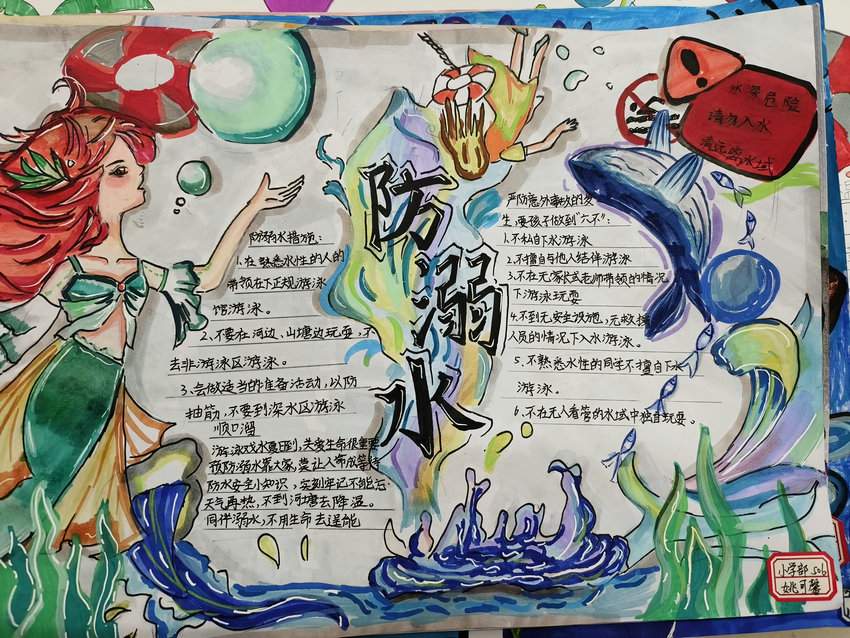 防溺水
防溺水措施:
1、在熟悉水性的人的
带领在下正规游泳
馆游泳。
2、不要在河边、山塘边玩耍,不
去非游泳区游泳。
3、会做适当的准备活动,以防
抽筋,不要到深水区游泳
顺口溜
游泳戏水莫
关爱生命很重要
预防溺水靠大家,
防水安全小知识,定刻牢记不能忘
天气再热,不到河塘去降温。
同伴溺水,不用生命去逞能
严防意外事故的发
生,要孩子做到“六不”:
1.不私自下水游泳
2.不擅自与他人结伴游泳
3.不在无家长或老师带领的情况
下游泳玩耍
4.不到无安全设施,无救援
人员的情况下入水游泳。
5.不熟悉水性的同学不擅自下水
游泳。
6.不在无人看管的水域中独自玩耍。
水深危险
请勿入水
请远离水域
小学部 506
姚可馨